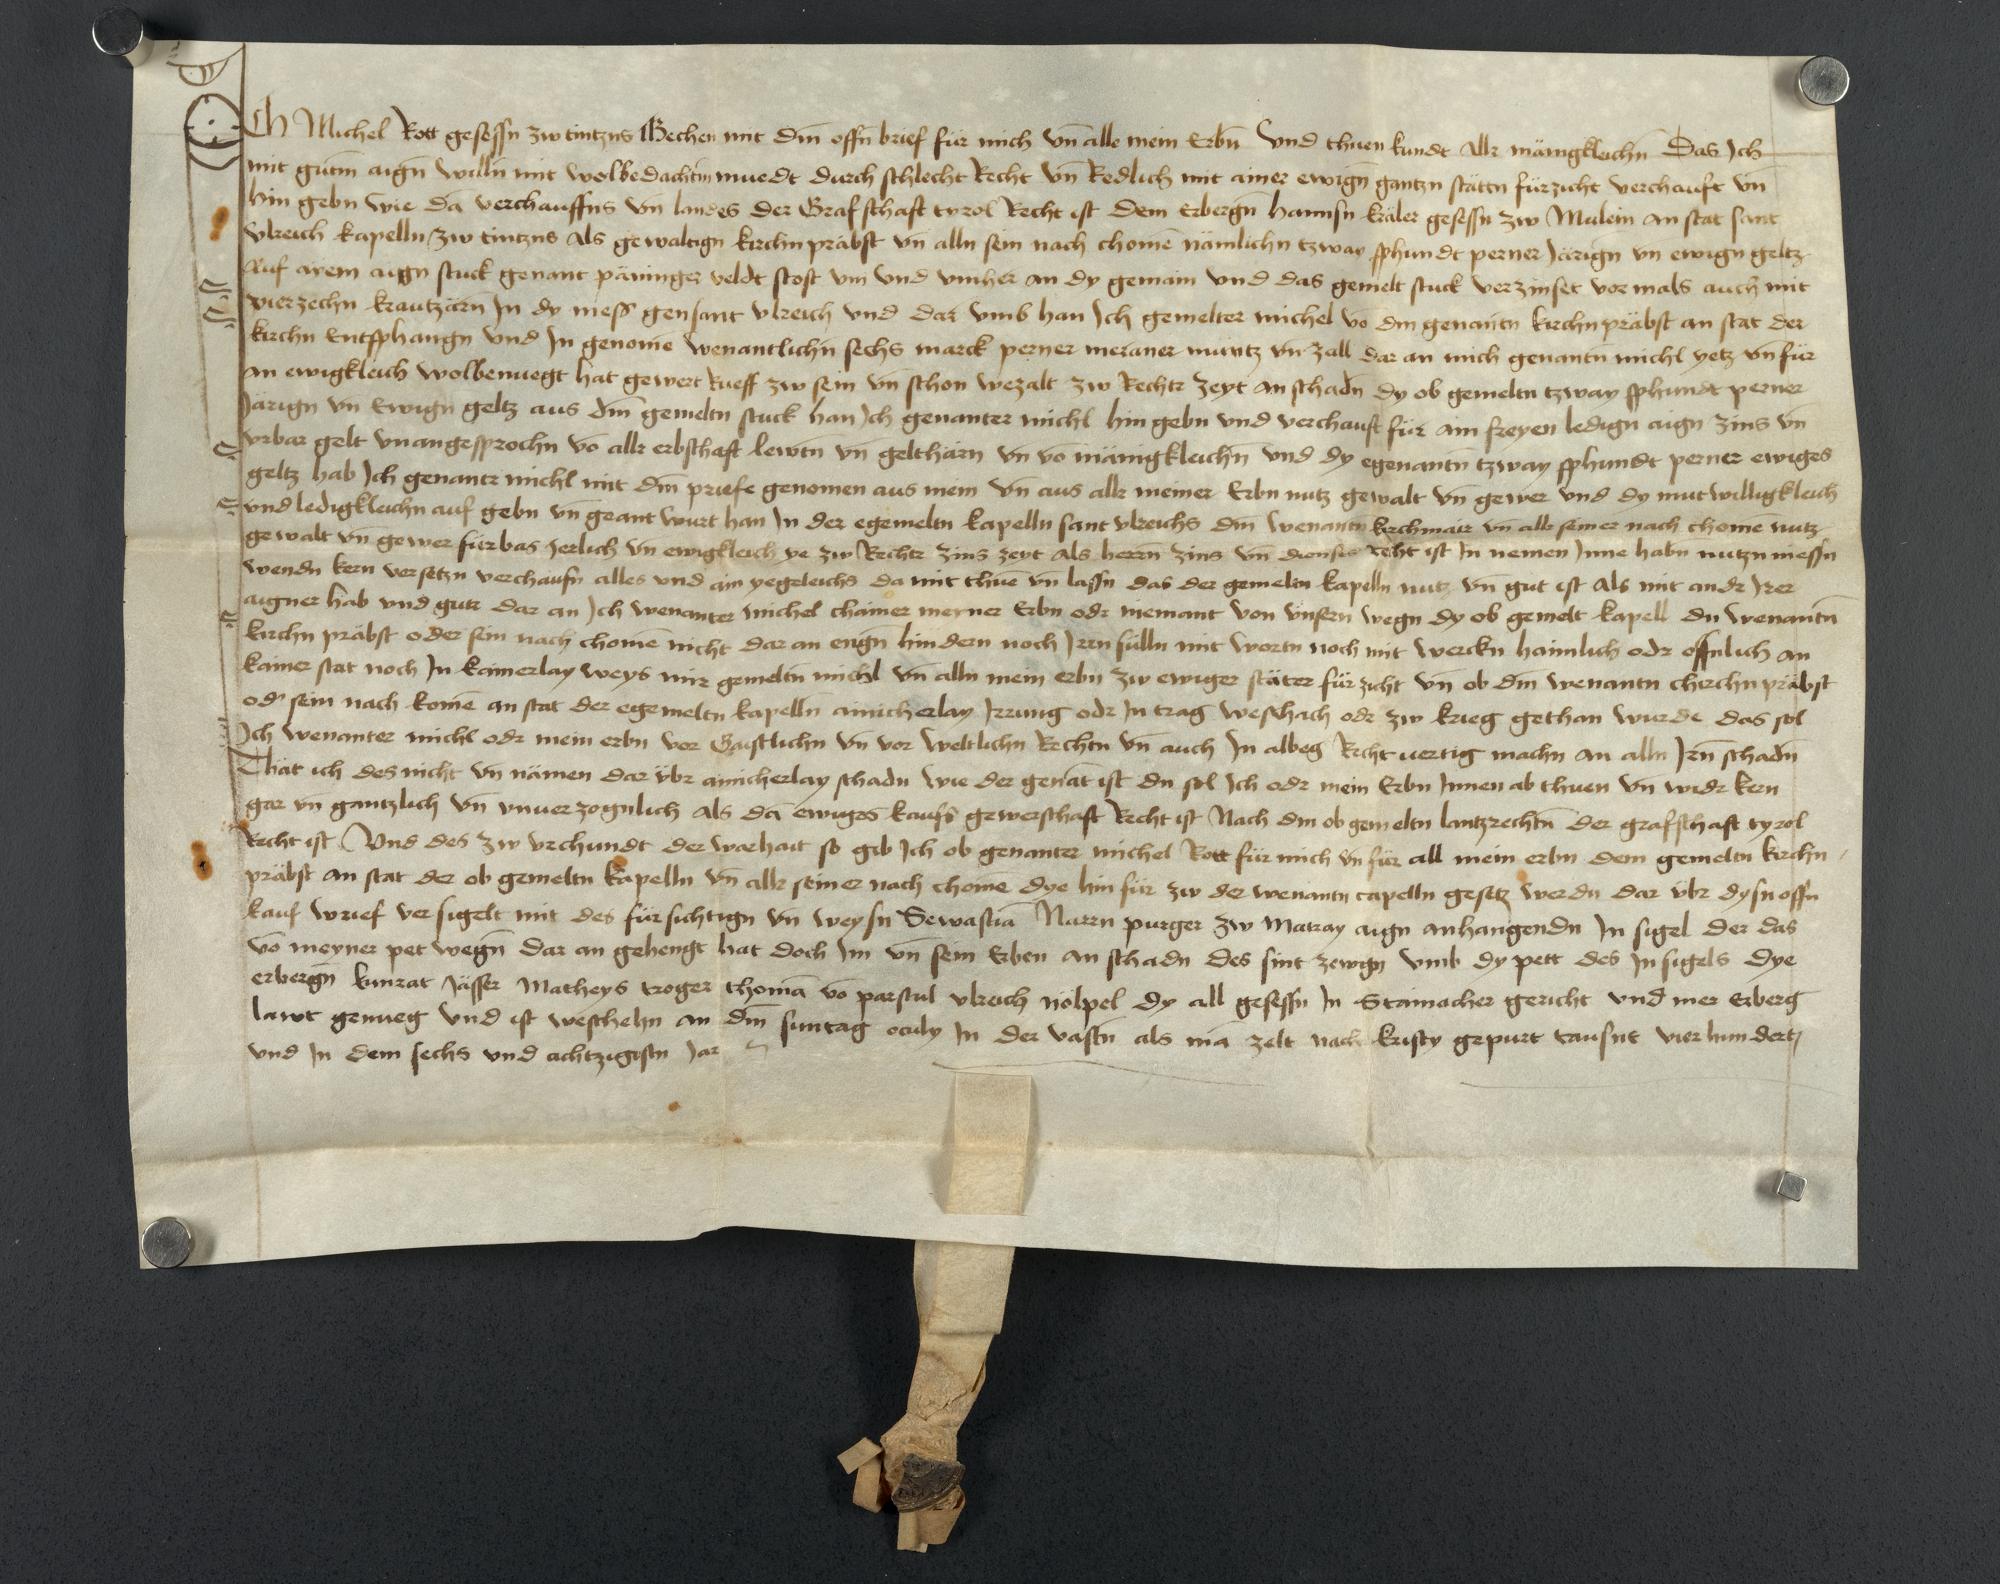 Ich Michel Kott gesessn zw tintzns Vechen mit dm̄ offn̄ brief für mich vn̄ alle mein Erbn̄ Vnd thuen kundt Allr mänigkleichn̄ Das Ich
mit gutm̄ aign̄ willn̄ mit wolbedachtm̄ muedt durch schlecht Recht vn̄ Redlich mit ainer ewign̄ gantzn stättn fürzicht verchauft vn̄
hin gebn wie dā verchauffns vn̄ landes der Grafschaft tyrol Recht ist dem Erbergn̄ hannsn kräler gesessn zw Mulein an stat sant
vlreich kapelln zw tintzns Als gewaltign kirchn präbst vn̄ alln sein nach chomē nämlichn tzway pfhundt perner Järign vn̄ ewign geltz
Auf airem aign stuck genant päninger veldt stost vm vnd vmher an dy gemain vnd das gemelt stuck verzinset vor mals auch mit
vierzechn krautzärn In dy mess gen sant vlreich vnd dar vmb han Ich gemelter michel vō dm̄ genantn̄ kirchn präbst an stat der
kirchn Entpfhangn vnd In genomē wenantlichn sechs marck perner meraner müntz vn̄ zall dar an mich genantn michl yetz vn̄ für
an ewigkleich wolbenuegt hat gewert kueff zw sein vn̄ schon wezalt zw Rechtr zeyt an schadn̄ dy ob gemeltn tzway pfhundt perner
Järign vn̄ Ewign geltz aus dm̄ gemeltn stuck han Ich genanter michl hin gebn vnd verchauft für ain freyen ledign aign zins vn̄
vrbar gelt vnangesprochn vō allr erbschaft lewtn̄ vn̄ gelthärn vn̄ vō mänigkleichn̄ vnd dy egenantn̄ tzway pfhundt perner ewiges
geltz hab Ich genantr michl mit dm̄ priefe genomen aus mein vn̄ aus allr meiner Erbn nutz gewalt vn̄ gewer vnd dy mutwilligkleich
vnd ledigkleichn auf gebn vn̄ geant wurt han In der egemeltn kapelln sant vlreichs dm̄ wenantn̄ kirchmair vn̄ allr seiner nach chomē nutz
gewalt vn̄ gewer fürbas Jerlich vn̄ ewigkleich ye zw Rechtr zins zeyt Als herrn̄ zins vn̄ dienses recht ist In nemen Inne habn nutzn messn
wendn kern versetzn verchaufn alles vnd ain yegeleichs da mit thuē vn̄ lassn das der gemeltn kapelln nutz vn̄ gut ist Als mit andr Irer
aigner hab vnd gutr dar an Ich wenanter michel chainer meyner Erbn odr niemant von vnsern wegn dy ob gemelt kapell dn wenantn̄
kirchn präbst oder sein nach chomē nicht dar an engn̄ hindern noch Irrn sülln mit wortn noch mit werckn haimlich odr offnlich an
kainer stat noch In kainerlay weys mir gemeltn michl vn̄ alln mein erbn zw ewiger stäter für zicht vn̄ ob dm̄ wenantn cherchn präbst
od' sein nach komē an stat der egemeltn kapelln̄ ainicherlay Irrung odr In trag weschach odr zw krieg gethan wurde das sol
Ich wenanter michl odr mein erbn vor Gaistlichn vn̄ vor weltlichn Rechtn vn̄ auch In albeg Recht uertig machn an alln Irn̄ schadn̄
Thät ich des nicht vn̄ nämen dar v̈br ainicherlay schadn wie der genāt ist dn sol Ich odr mein Erbn Innen ab thuen vn̄ widr kern
gar vn̄ gantzlich vn̄ vnuerzognlich Als dā ewiges kaufs gewerschaft Recht ist Nach dm ob gemeltn lantzrechtn̄ der grafschaft tyrol
Recht ist Vnd des zw vrchundt der warhait so gib Ich ob genanter michel Kott für mich vn̄ für all mein erbn dem gemeltn kirchn
präbst an stat der ob gemeltn kapelln vn̄ allr seiner nach chomē dye hin für zw der wenantn capelln gesetz werdn dar v̈br dysn offn
kauf wrief versigelt mit des fürsichtign vn̄ weysn Sewastiā Narrn purger zw Matray aign anhangendn In sigel der das
vō meyner pet wegn̄ dar an gehengt hat doch Im vn̄ sein Erben an schadn des sint zewgn vmb dy pett des In sigels dye
erbergn̄ kunrat Jässer Matheys troger thomā vō parstul vlreich nölpel dy all gesessn In Stainacher gericht vnd mer Erberg
lawt genueg vnd ist weschehn an dm̄ suntag oculy In der vastn als mā zelt nach kristy gepurt tausnt vierhundert
vnd In dem sechs vnd achtzigistn Jar